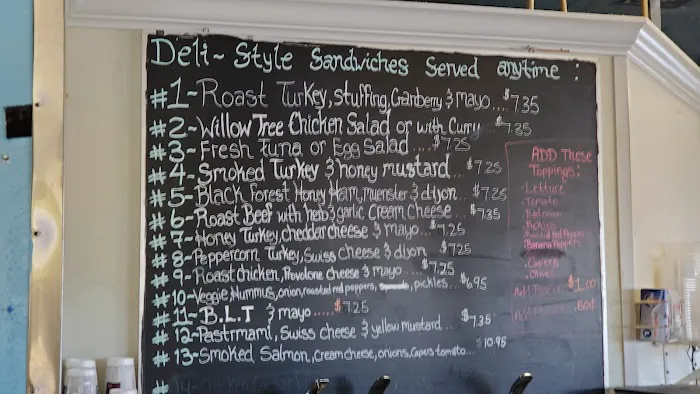 Deli~Style Sandwiches Served anytime:
#1-Roast Turkey, stuffing, Cranberry & mayo...$7.35
#2-Willow Tree Chicken Salad or with Curry $7.35
#3-Fresh Tuna or Egg Salad....$7.25
#4-Smoked Turkey & honey mustard...$7.25
#5-Black Forest Honey Ham, muenster & dijon...$7.25
#6-Roast Beef with herb & garlic Cream Cheese...$7.35
#7-Honey Turkey, cheddar cheese & mayo...$7.25
#8-Peppercorn Turkey, Swiss cheese & dijon $7.25
#9-Roast chicken, Provolone cheese & mayo...$7.25
#10-Veggie, Hummus, onion, roasted red peppers, pickles...$6.95
#11-B.L.T & mayo.....$7.25
#12-Pastrmami, Swiss cheese & yellow mustard...$7.35
#13-Smoked Salmon, Cream cheese, onions, Capers tomato...$10.95
ADD These
Toppings:
Lettuce
Tomato
Red onion
Pickles
Roasted Red Peppers
Banana Peppers
Capers
Olives
$1.00
50¢